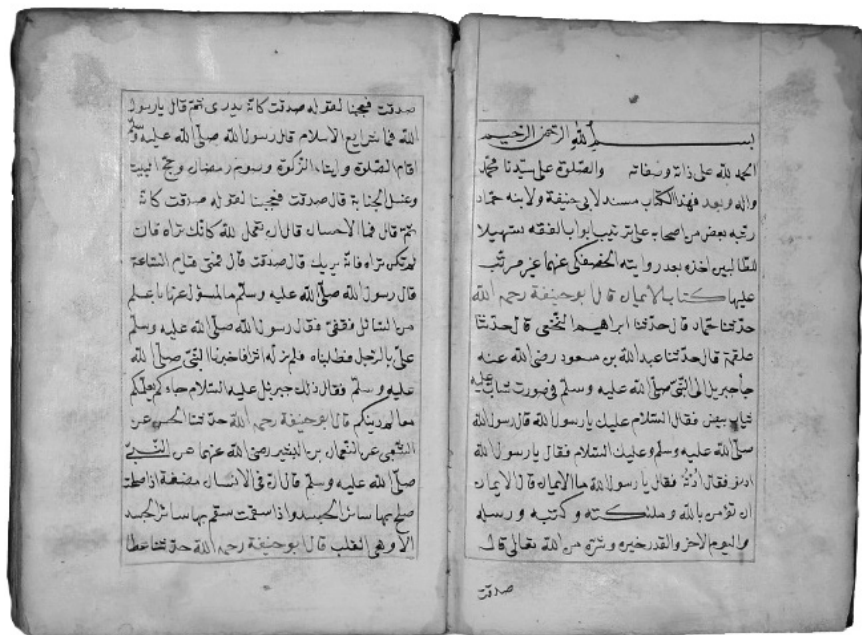 بسم الله الرحمن الرحيم
الحمد لله على ذاته وصفاته والصلوة على سيدنا محمد
واله وبعد فهذا الكتاب مسند لابى حنيفة ولابنه حماد
رتبه بعض من اصحابه على ترتيب ابواب الفقه تسهيلا
للطالبين اخذه بعد رواية الحصفكى عنهما غير مرتب
عليها كتاب الايمان قال ابو حنيفة رحمه الله
حدثنا حماد قال حدثنا ابراهيم النخعى قال حدثنا
علقمة قال حدثنا عبد الله بن مسعود رضى الله عنه
جاء جبريل الى النبى صلى الله عليه وسلم فى صورت شاب عليه
ثياب بيض فقال السلام عليك يا رسول الله قال رسول الله
صلى الله عليه وسلم وعليك السلام فقال يا رسول الله
ادنو فقال ادنه فقال يا رسول الله ما الايمان قال الايمان
ان تؤمن بالله وملئكته وكتبه ورسله
واليوم الاخر والقدر خيره وشره من الله تعالى قال
صدقت
صدقت فعجبنا لقوله صدقت كانه يدرى ثم قال يا رسول
الله فما شرايع الاسلام قال رسول الله صلى الله عليه وسلم
اقام الصلوة وايتاء الزكوة وصوم رمضان وحج البيت
وغسل الجنابة قال صدقت فعجبنا لقوله صدقت كانه
ثم قال فما الاحسان قال ان تعمل لله كانك تراه فان
لم تكن تراه فانه يريك قال صدقت قال فمتى قيام الساعة
قال رسول الله صلى الله عليه وسلم ما المسؤل عنها باعلم
من السائل فقفى فقال رسول الله صلى الله عليه وسلم
على بالرجل فطلبناه فلم نر له اثرا فاخبرنا النبى صلى الله
عليه وسلم فقال ذلك جبريل عليه السلام جاءكم يعلمكم
معالم دينكم قال ابو حنيفة رحمه الله حدثنا الحسن عن
الشعبى عن النعمان بن البشير رضى الله عنهما عن النبى
صلى الله عليه وسلم قال ان فى الانسان مضغة اذا صلحت
صلح بها سائر الجسد واذا سقمت سقم بها سائر الجسد
الا وهى القلب قال ابو حنيفة رحمه الله حدثنا عطا